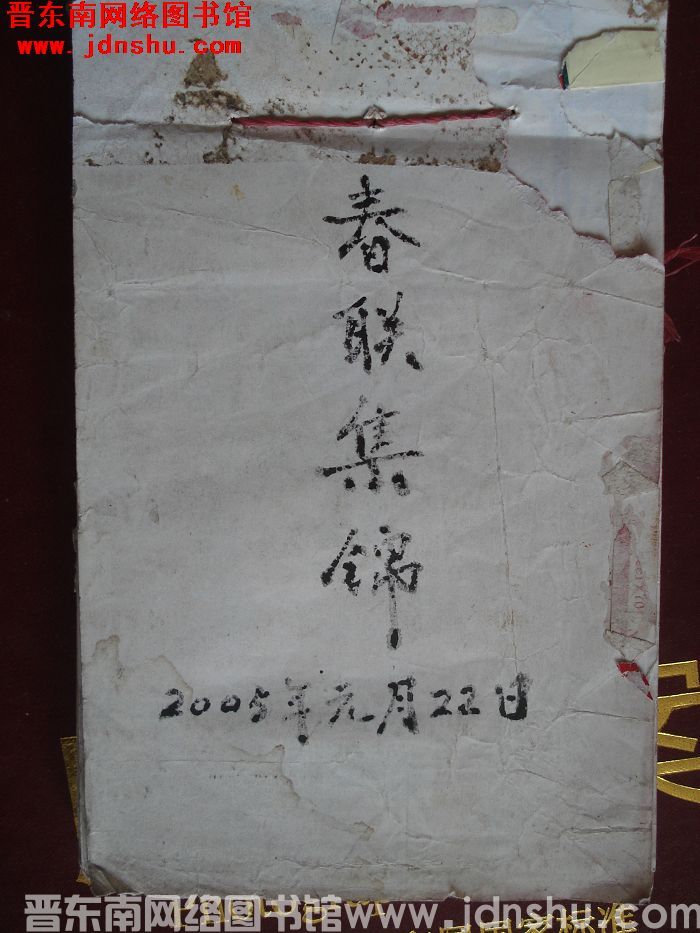 晋东南网络图书馆
www.jdnshu.com
春联集锦
2005年元月22日
晋东南网络图书馆 www.jdnshu.com